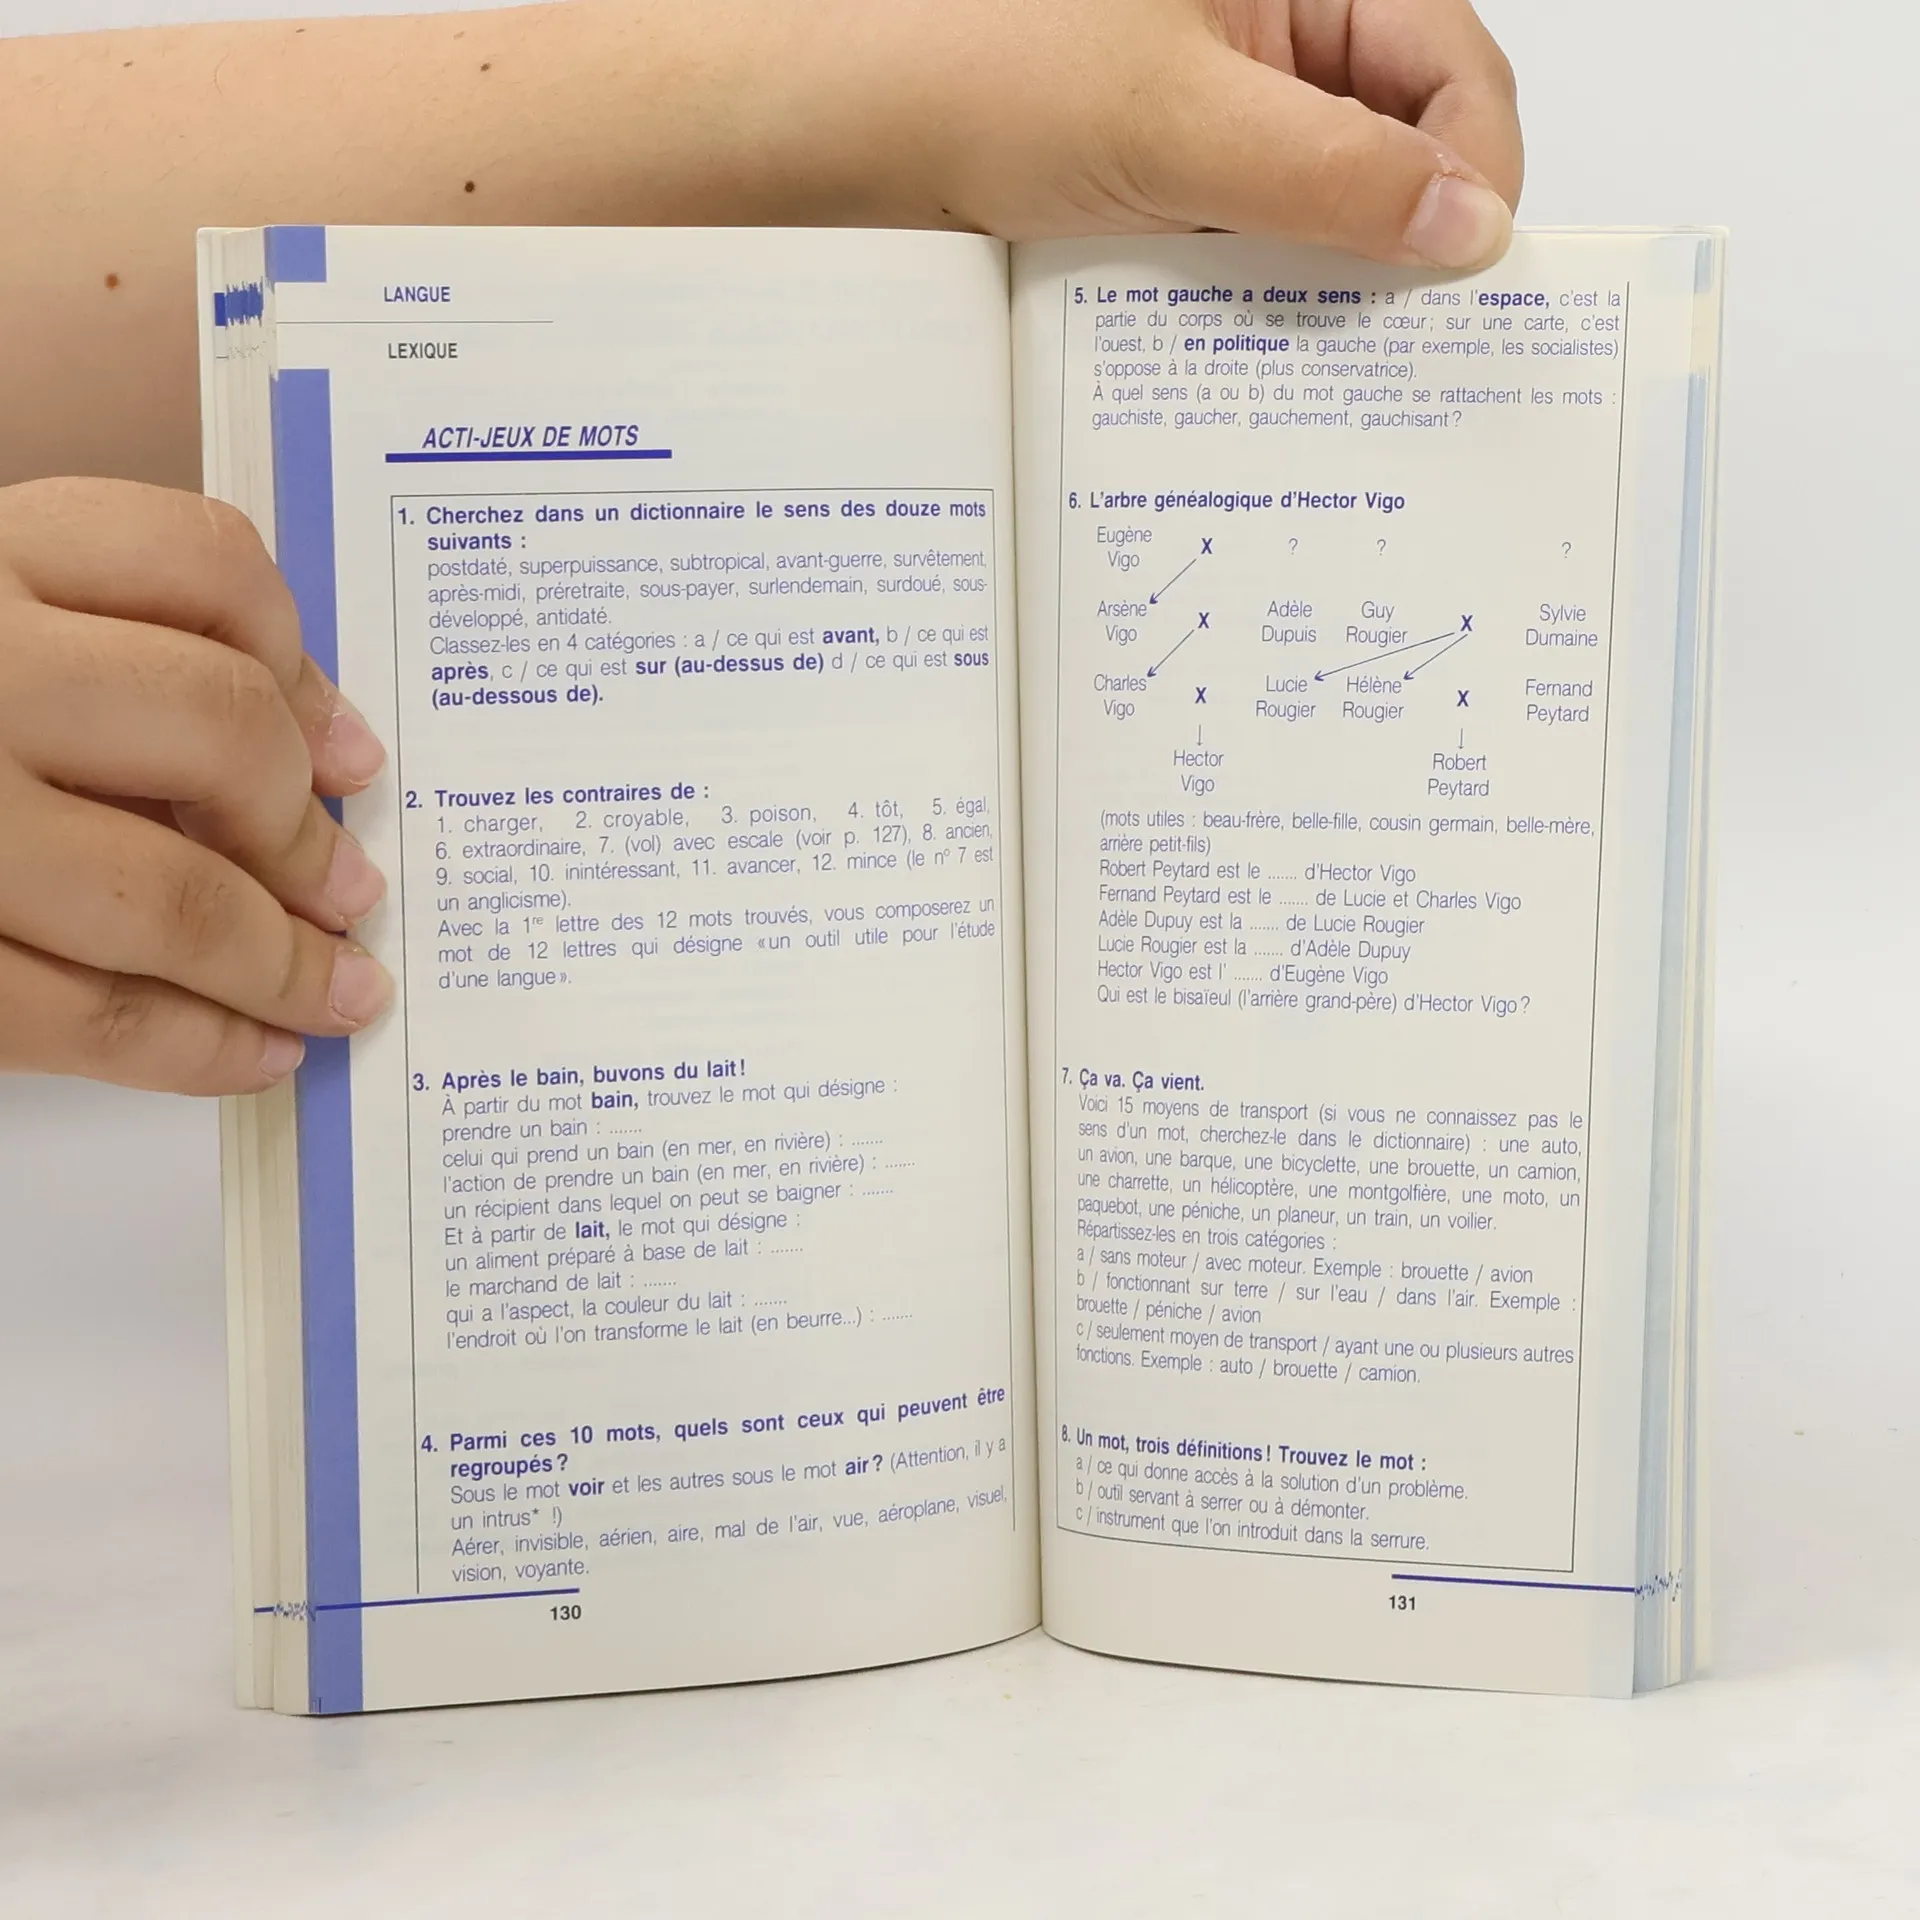 LANGUE
LEXIQUE
ACTI-JEUX DE MOTS
1. Cherchez dans un dictionnaire le sens des douze mots
suivants :
postdaté, superpuissance, subtropical, avant-guerre, survêtement,
après-midi, préretraite, sous-payer, surlendemain, surdoué, sous-
développé, antidaté.
Classez-les en 4 catégories : a / ce qui est avant, b / ce qui est
après, c / ce qui est sur (au-dessus de) d / ce qui est sous
(au-dessous de).
2. Trouvez les contraires de :
1. charger, 2. croyable, 3. poison, 4. tôt, 5. égal,
6. extraordinaire, 7. (vol) avec escale (voir p. 127), 8. ancien,
9. social, 10. inintéressant, 11. avancer, 12. mince (le nº 7 est
un anglicisme).
Avec la 1re lettre des 12 mots trouvés, vous composerez un
mot de 12 lettres qui désigne «un outil utile pour l'étude
d'une langue».
3. Après le bain, buvons du lait!
À partir du mot bain, trouvez le mot qui désigne :
prendre un bain : .......
celui qui prend un bain (en mer, en rivière) : .......
l'action de prendre un bain (en mer, en rivière) : .......
un récipient dans lequel on peut se baigner : .......
Et à partir de lait, le mot qui désigne :
un aliment préparé à base de lait : .......
le marchand de lait : .......
qui a l'aspect, la couleur du lait : .......
l'endroit où l'on transforme le lait (en beurre...) : .......
4. Parmi ces 10 mots, quels sont ceux qui peuvent être
regroupés?
Sous le mot voir et les autres sous le mot air? (Attention, il y a
un intrus* !)
Aérer, invisible, aérien, aire, mal de l'air, vue, aéroplane, visuel,
vision, voyante.
130
5. Le mot gauche a deux sens : a / dans l'espace, c'est la
partie du corps où se trouve le cœur; sur une carte, c'est
l'ouest, b / en politique la gauche (par exemple, les socialistes)
s'oppose à la droite (plus conservatrice).
À quel sens (a ou b) du mot gauche se rattachent les mots :
gauchiste, gaucher, gauchement, gauchisant?
6. L'arbre généalogique d'Hector Vigo
Eugène X ? ? ?
Vigo
Arsène X Adèle Guy X Sylvie
Vigo Dupuis Rougier Dumaine
Charles X Lucie Hélène X Fernand
Vigo Rougier Rougier Peytard
Hector Robert
Vigo Peytard
(mots utiles : beau-frère, belle-fille, cousin germain, belle-mère,
arrière petit-fils)
Robert Peytard est le ....... d'Hector Vigo
Fernand Peytard est le ....... de Lucie et Charles Vigo
Adèle Dupuy est la ....... de Lucie Rougier
Lucie Rougier est la ....... d'Adèle Dupuy
Hector Vigo est l' ....... d'Eugène Vigo
Qui est le bisaïeul (l'arrière grand-père) d'Hector Vigo?
7. Ça va. Ça vient.
Voici 15 moyens de transport (si vous ne connaissez pas le
sens d'un mot, cherchez-le dans le dictionnaire) : une auto,
un avion, une barque, une bicyclette, une brouette, un camion,
une charrette, un hélicoptère, une montgolfière, une moto, un
paquebot, une péniche, un planeur, un train, un voilier.
Répartissez-les en trois catégories :
a / sans moteur / avec moteur. Exemple : brouette / avion
b / fonctionnant sur terre / sur l'eau / dans l'air. Exemple :
brouette / péniche / avion
c / seulement moyen de transport / ayant une ou plusieurs autres
fonctions. Exemple : auto / brouette / camion.
8. Un mot, trois définitions! Trouvez le mot :
a / ce qui donne accès à la solution d'un problème.
b / outil servant à serrer ou à démonter.
c / instrument que l'on introduit dans la serrure.
131